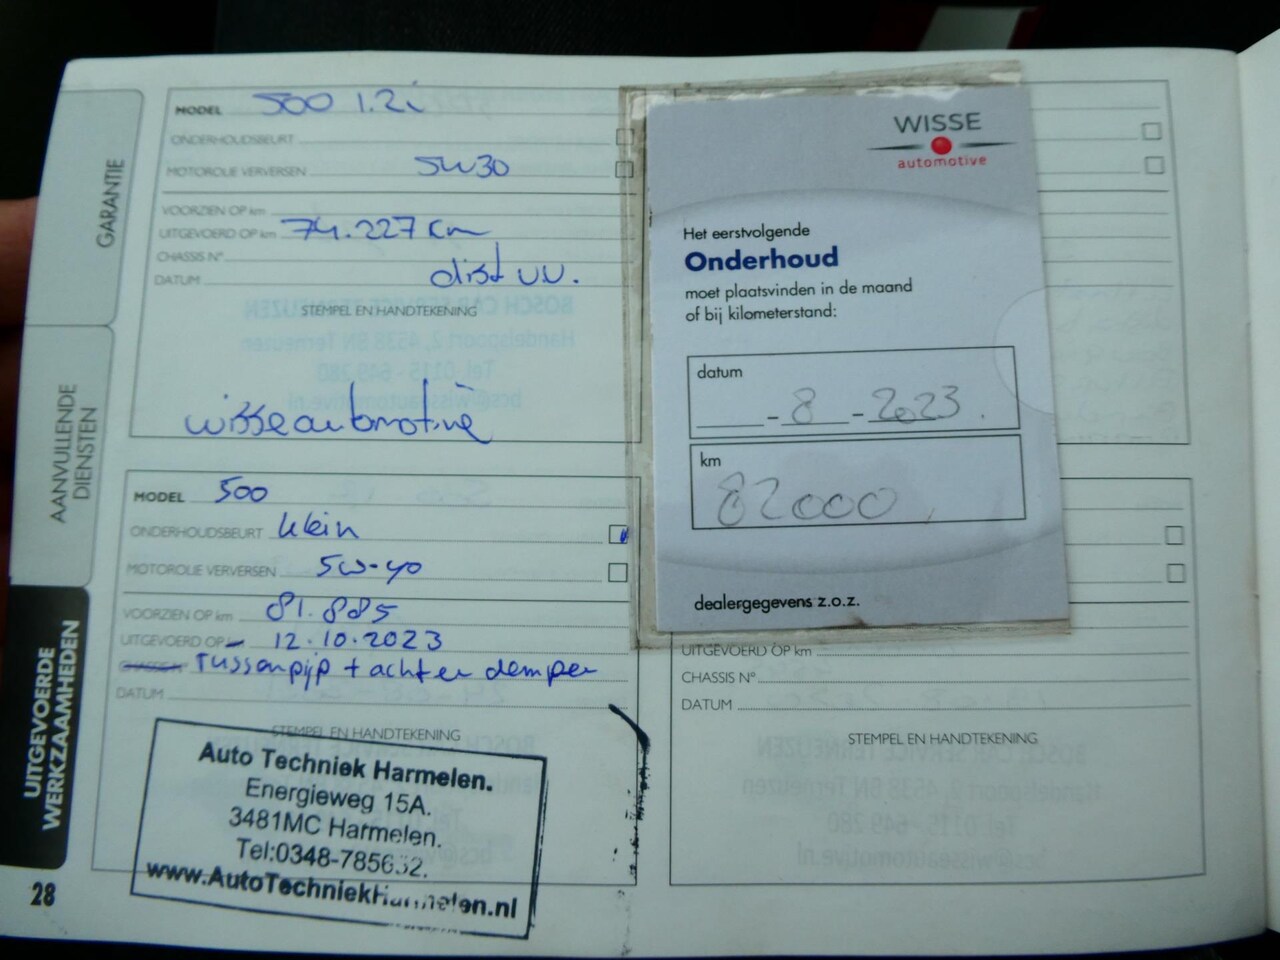 GARANTIE
AANVULLENDE
DIENSTEN
UITGEVOERDE
WERKZAAMHEDEN
28
MODEL 500 1.2i
ONDERHOUDSBEURT
MOTOROLIE VERVERSEN 5W30
VOORZIEN OP km
UITGEVOERD OP km 74.227 km
CHASSIS N°
DATUM dist vv.
STEMPEL EN HANDTEKENING
wisseautomotive
MODEL 500
ONDERHOUDSBEURT klein
MOTOROLIE VERVERSEN 5w-40
VOORZIEN OP km 81.885
UITGEVOERD OP km 12.10.2023
CHASSIS N° Tussenpijp + achter demper
DATUM
STEMPEL EN HANDTEKENING
Auto Techniek Harmelen.
Energieweg 15A.
3481MC Harmelen.
Tel:0348-785632.
www.AutoTechniekHarmelen.nl
WISSE
automotive
Het eerstvolgende
Onderhoud
moet plaatsvinden in de maand
of bij kilometerstand:
datum
- 8 - 2023.
km
82000
dealergegevens z.o.z.
UITGEVOERD OP km
CHASSIS N°
DATUM
STEMPEL EN HANDTEKENING